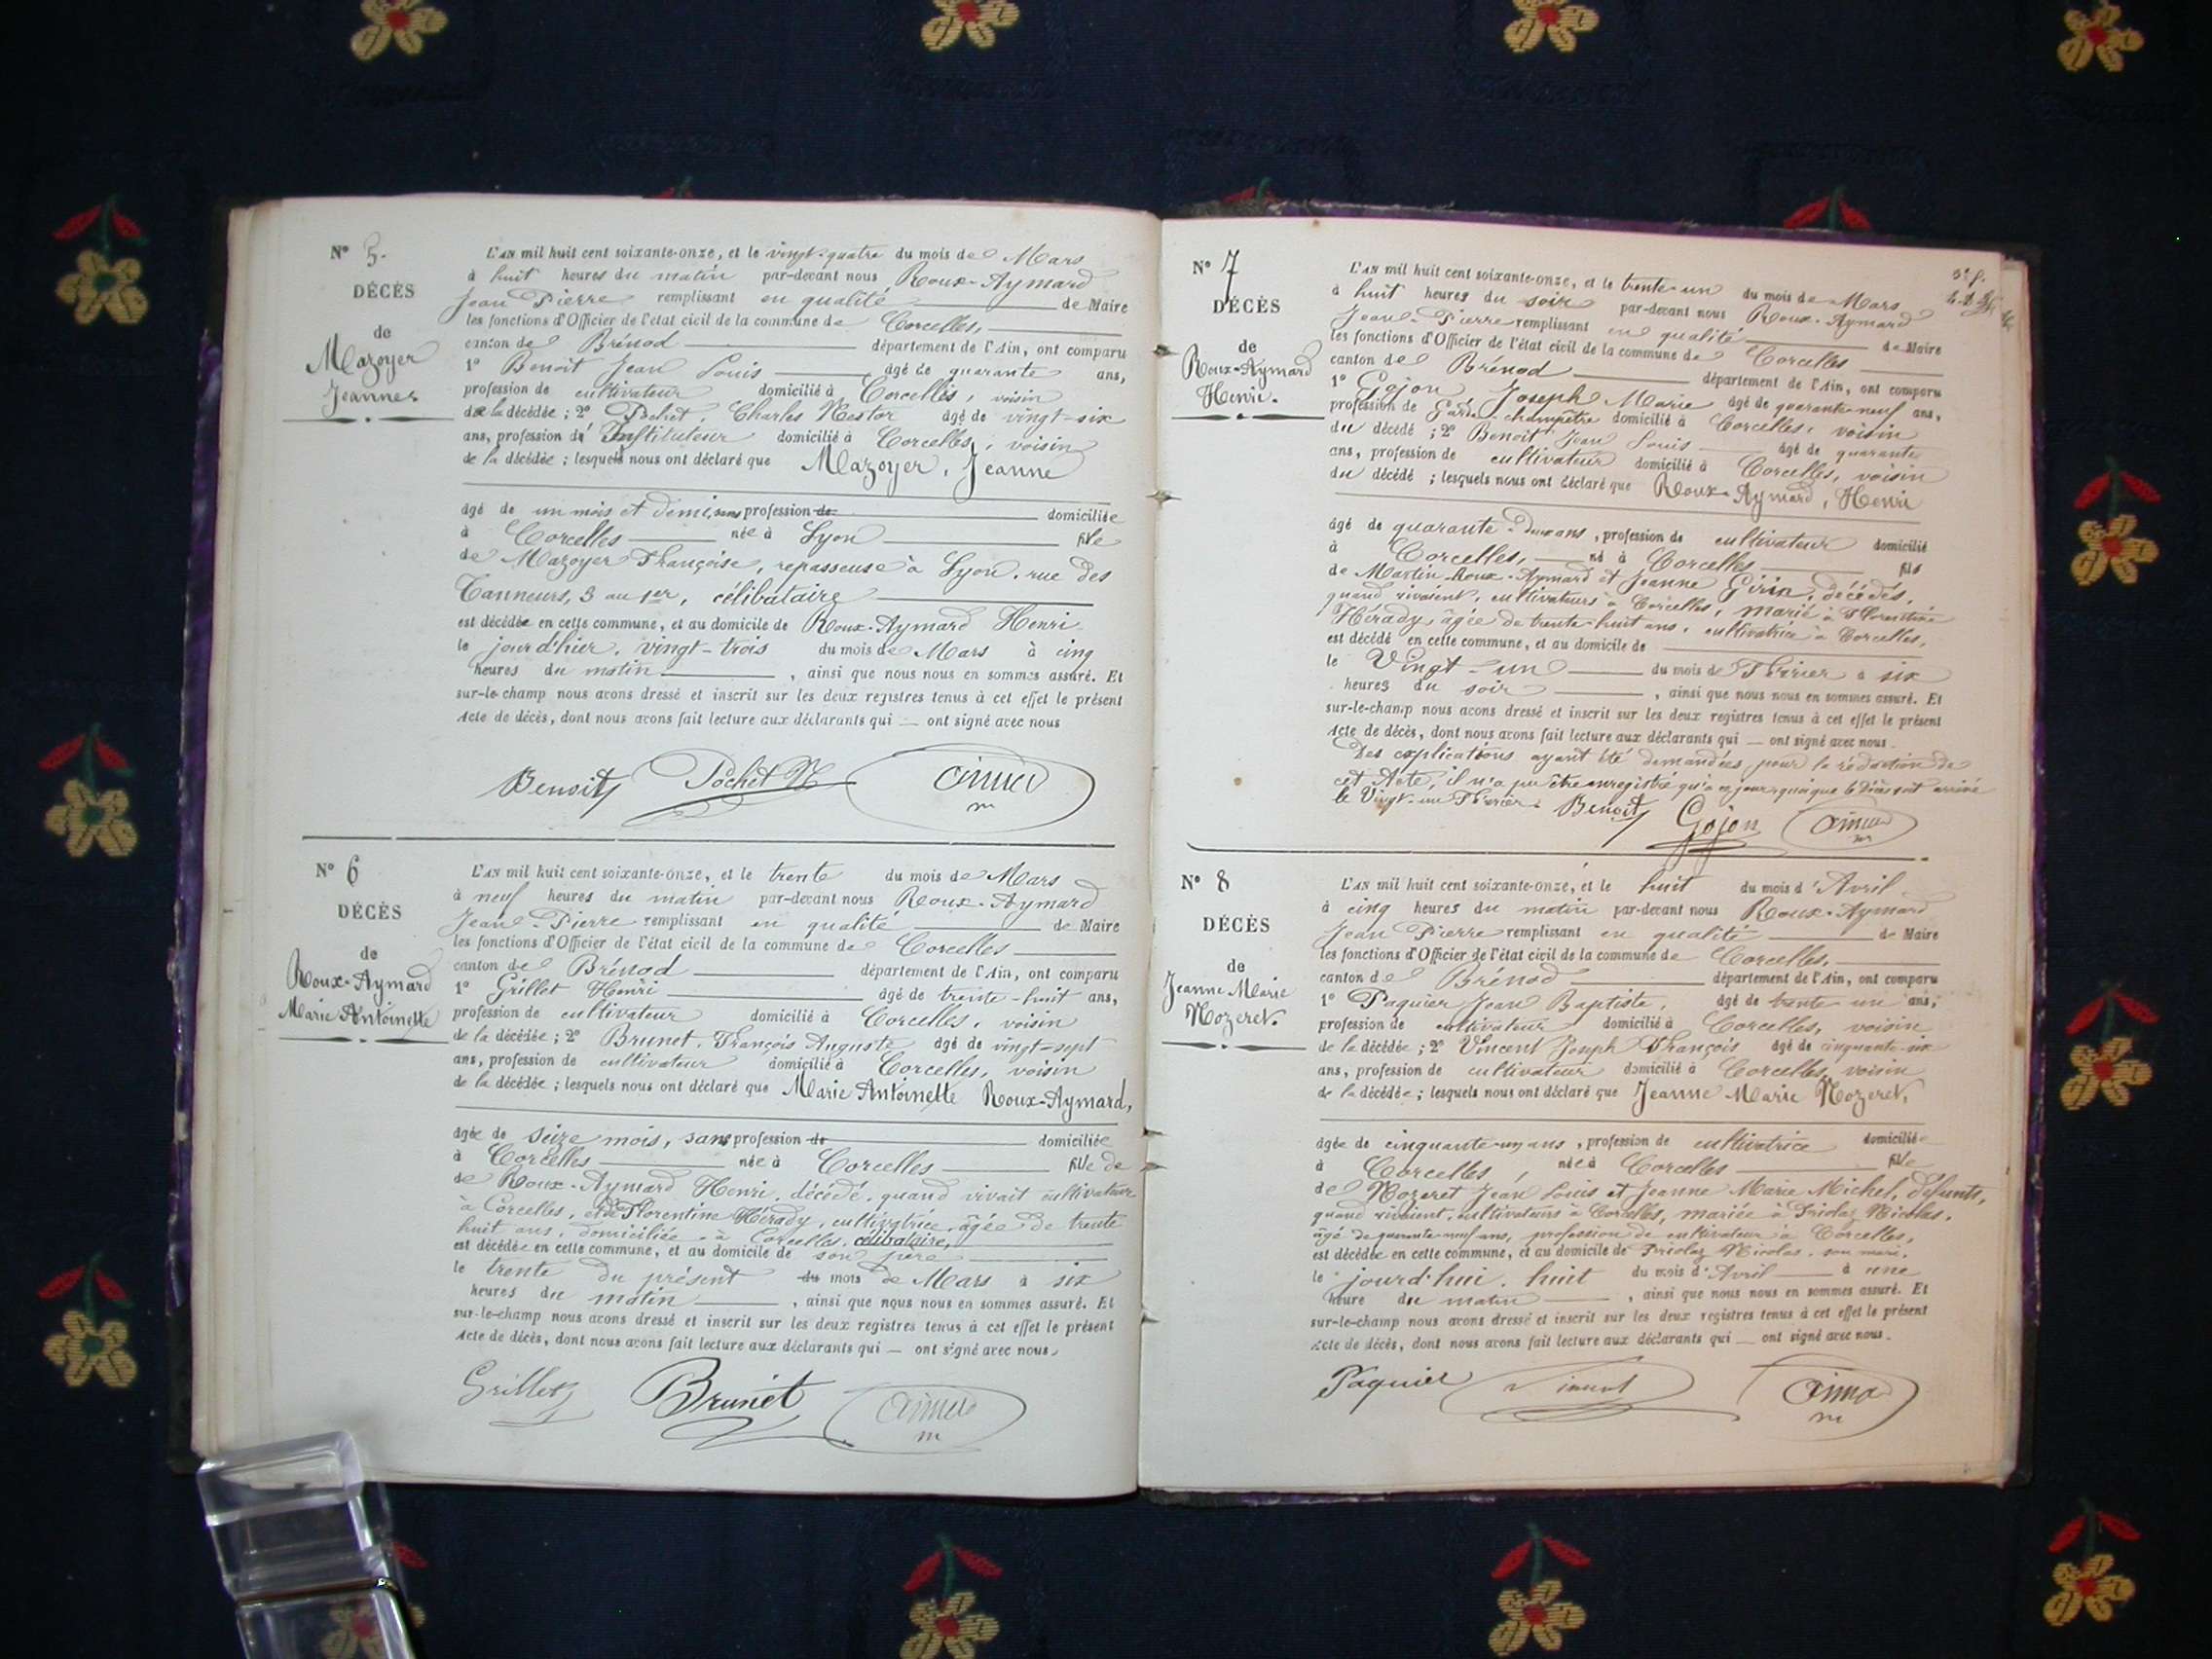 N° 5.
DÉCÈS
de
Mazoyer
Jeanne
L'AN mil huit cent soixante-onze, et le vingt-quatre du mois de Mars
à huit heures du matin par-devant nous Roux-Aymard
Jean Pierre remplissant en qualité de Maire
les fonctions d'Officier de l'état civil de la commune de Corcelles,
canton de Brénod département de l'Ain, ont comparu
1° Benoit Jean Louis âgé de quarante ans,
profession de cultivateur domicilié à Corcelles, voisin
de la décédée ; 2° Pochet, Charles Nestor âgé de vingt-six
ans, profession d' Instituteur domicilié à Corcelles, voisin
de la décédée ; lesquels nous ont déclaré que Mazoyer, Jeanne
âgé de un mois et demi, sans profession de domiciliée
à Corcelles née à Lyon fille
de Mazoyer Françoise, repasseuse à Lyon, rue des
Tanneurs, 3 au 1er, célibataire
est décédée en cette commune, et au domicile de Roux-Aymard Henri
le jour d'hier, vingt-trois du mois de Mars à cinq
heures du matin , ainsi que nous nous en sommes assuré. Et
sur-le-champ nous avons dressé et inscrit sur les deux registres tenus à cet effet le présent
Acte de décès, dont nous avons fait lecture aux déclarants qui — ont signé avec nous
Benoit Pochet N
N° 6
DÉCÈS
de
Roux-Aymard
Marie Antoinette
L'AN mil huit cent soixante-onze, et le trente du mois de Mars
à neuf heures du matin par-devant nous Roux-Aymard
Jean-Pierre remplissant en qualité de Maire
les fonctions d'Officier de l'état civil de la commune de Corcelles
canton de Brénod département de l'Ain, ont comparu
1° Grillet Henri âgé de trente-huit ans,
profession de cultivateur domicilié à Corcelles, voisin
de la décédée ; 2° Brunet, François Auguste âgé de vingt-sept
ans, profession de cultivateur domicilié à Corcelles, voisin
de la décédée ; lesquels nous ont déclaré que Marie Antoinette Roux-Aymard,
âgée de seize mois, sans profession de domiciliée
à Corcelles née à Corcelles fille de
de Roux-Aymard Henri, décédé, quand vivait cultivateur
à Corcelles, et de Florentine Hérady, cultivatrice, âgée de trente
huit ans, domiciliée à Corcelles, célibataire,
est décédée en cette commune, et au domicile de son père
le trente du présent du mois de Mars à six
heures du matin , ainsi que nous nous en sommes assuré. Et
sur-le-champ nous avons dressé et inscrit sur les deux registres tenus à cet effet le présent
Acte de décès, dont nous avons fait lecture aux déclarants qui — ont signé avec nous.
Grillet Brunet
N° 7
DÉCÈS
de
Roux-Aymard
Henri.
L'AN mil huit cent soixante-onze, et le trente-un du mois de Mars
à huit heures du soir par-devant nous Roux-Aymard
Jean-Pierre remplissant en qualité de Maire
les fonctions d'Officier de l'état civil de la commune de Corcelles
canton de Brénod département de l'Ain, ont comparu
1° Gojon Joseph Marie âgé de quarante-neuf ans,
profession de Garde-champêtre domicilié à Corcelles, voisin
du décédé ; 2° Benoit Jean Louis âgé de quarante
ans, profession de cultivateur domicilié à Corcelles, voisin
du décédé ; lesquels nous ont déclaré que Roux-Aymard, Henri
âgé de quarante-deux ans, profession de cultivateur domicilié
à Corcelles, né à Corcelles fils
de Martin Roux-Aymard et Jeanne Girin, décédés,
quand vivaient, cultivateurs à Corcelles, marié à Florentine
Hérady, âgée de trente-huit ans, cultivatrice à Corcelles,
est décédé en cette commune, et au domicile de
le Vingt-un du mois de Février à six
heures du soir , ainsi que nous nous en sommes assuré. Et
sur-le-champ nous avons dressé et inscrit sur les deux registres tenus à cet effet le présent
Acte de décès, dont nous avons fait lecture aux déclarants qui — ont signé avec nous.
Des explications ayant été demandées pour la rédaction de
cet Acte, il n'a pu être enregistré qu'à ce jour quoique le Décès soit arrivé
le Vingt-un Février. Benoit Gojon
N° 8
DÉCÈS
de
Jeanne Marie
Nozeret.
L'AN mil huit cent soixante-onze, et le huit du mois d'Avril
à cinq heures du matin par-devant nous Roux-Aymard
Jean Pierre remplissant en qualité de Maire
les fonctions d'Officier de l'état civil de la commune de Corcelles,
canton de Brénod département de l'Ain, ont comparu
1° Paquier Jean Baptiste, âgé de trente-un ans,
profession de cultivateur domicilié à Corcelles, voisin
de la décédée ; 2° Vincent Joseph François âgé de cinquante-six
ans, profession de cultivateur domicilié à Corcelles, voisin
de la décédée ; lesquels nous ont déclaré que Jeanne Marie Nozeret,
âgée de cinquante-un ans, profession de cultivatrice domiciliée
à Corcelles, née à Corcelles fille
de Nozeret Jean Louis et Jeanne Marie Michel, défunts,
quand vivaient, cultivateurs à Corcelles, mariée à Nicolas,
âgé de quarante-neuf ans, profession de cultivateur à Corcelles,
est décédée en cette commune, et au domicile de Nicolas, son mari,
le jourd'hui, huit du mois d'Avril à une
heure du matin , ainsi que nous nous en sommes assuré. Et
sur-le-champ nous avons dressé et inscrit sur les deux registres tenus à cet effet le présent
Acte de décès, dont nous avons fait lecture aux déclarants qui — ont signé avec nous.
Paquier Vincent